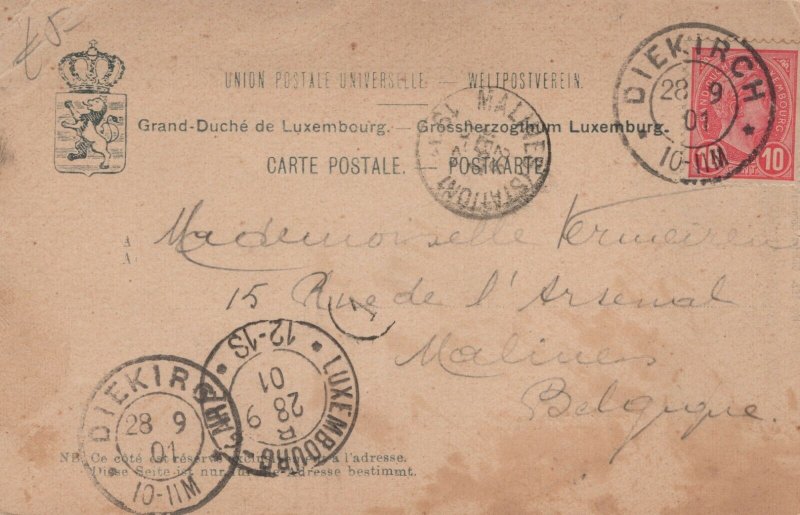 £5-
UNION POSTALE UNIVERSELLE. — WELTPOSTVEREIN.
Grand-Duché de Luxembourg. — Grossherzogthum Luxemburg.
CARTE POSTALE. — POSTKARTE.
DIEKIRCH
28 9
01
10-11M
10
MALINES (STATION)
Mademoiselle Vermeiren
15 Rue de l'Arsenal
Malines
Belgique.
1
LUXEMBOURG-GARE
12-1S
28 9
01
DIEKIRCH
28 9
01
10-11M
NB. Ce côté est réservé exclusivement à l'adresse.
Diese Seite ist nur für die Adresse bestimmt.